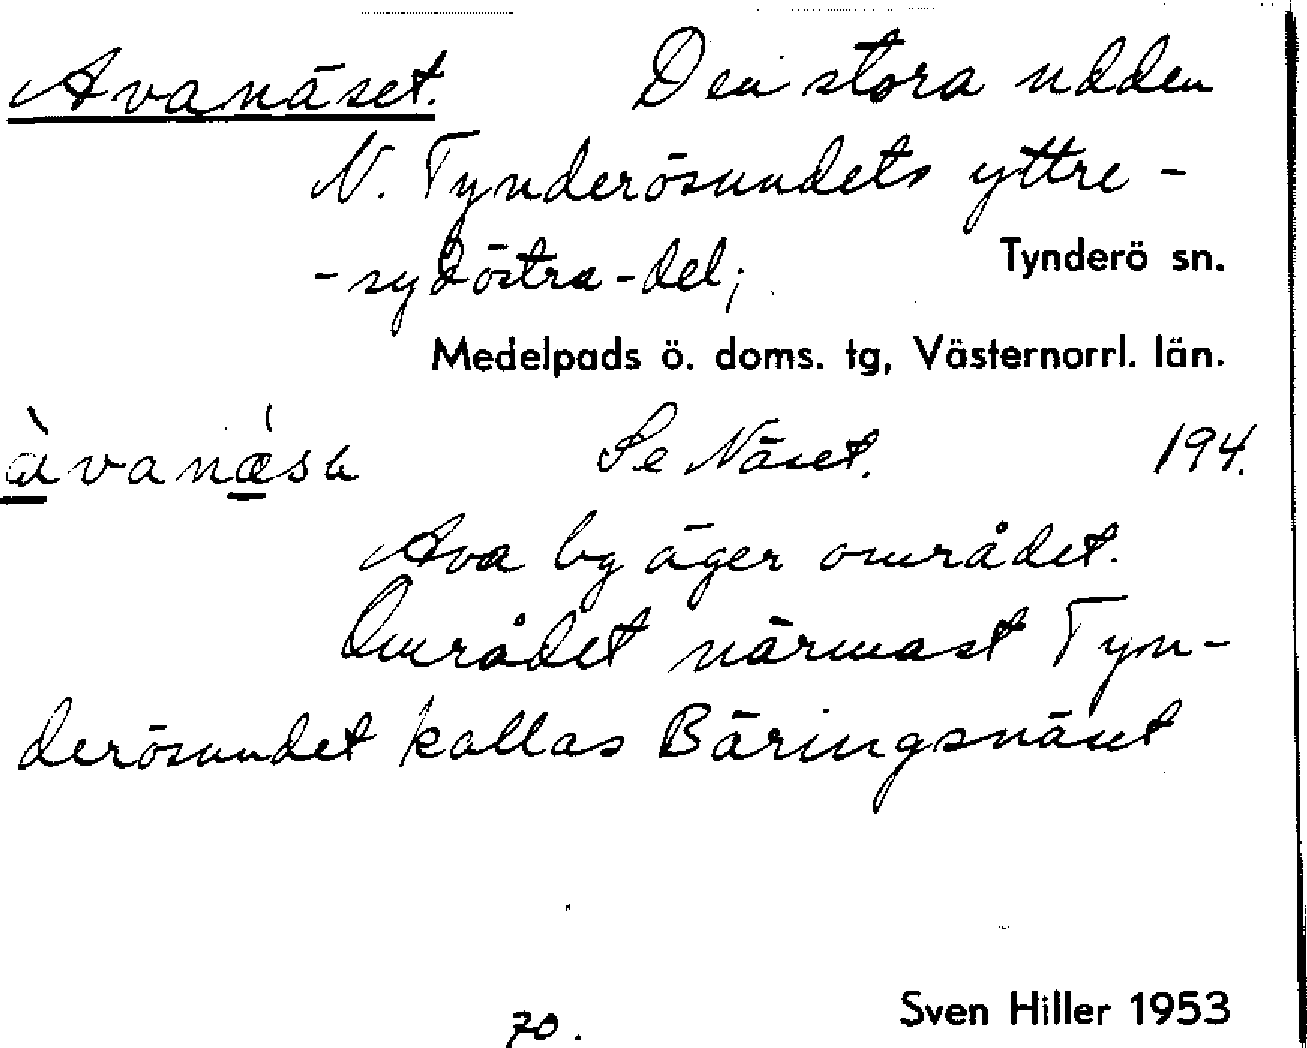 Avanäset. Den stora udden
N. Tynderösundets yttre -
- sydöstra - del;
Tynderö sn.
Medelpads ö. doms. tg, Västernorrl. län.
Se Näset. 194.
Ava by äger området.
Området närmast Tyn-
derösundet kallas Bäringsnäset
70.
Sven Hiller 1953